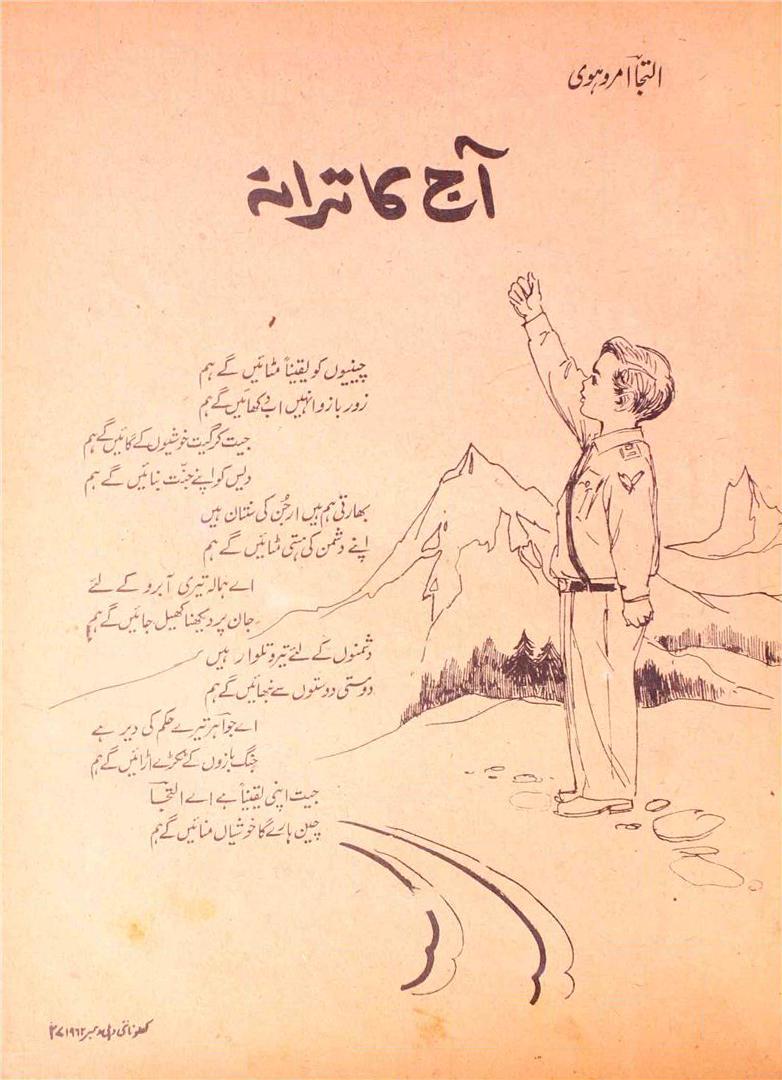 التجاؔ امروہوی
آج کا ترانہ
چینیوں کو یقیناً مٹائیں گے ہم
زورِ بازو انہیں اب دکھائیں گے ہم
جیت کر گیت خوشیوں کے گائیں گے ہم
دیس کو اپنے جنّت بنائیں گے ہم
بھارتی ہم ہیں ارجُن کی سنتان ہیں
اپنے دشمن کی ہستی مٹائیں گے ہم
اے ہمالہ تیری آبرو کے لئے
جان پر دیکھنا کھیل جائیں گے ہم
دشمنوں کے لئے تیر و تلوار ہیں
دوستی دوستوں سے نبھائیں گے ہم
اے جواہر تیرے حکم کی دیر ہے
جنگ بازوں کے ٹکڑے اڑائیں گے ہم
جیت اپنی یقیناً ہے اے التجاؔ
چین ہارے گا خوشیاں منائیں گے ہم
کھلونا نئی دہلی دسمبر ۱۹۶۲ء